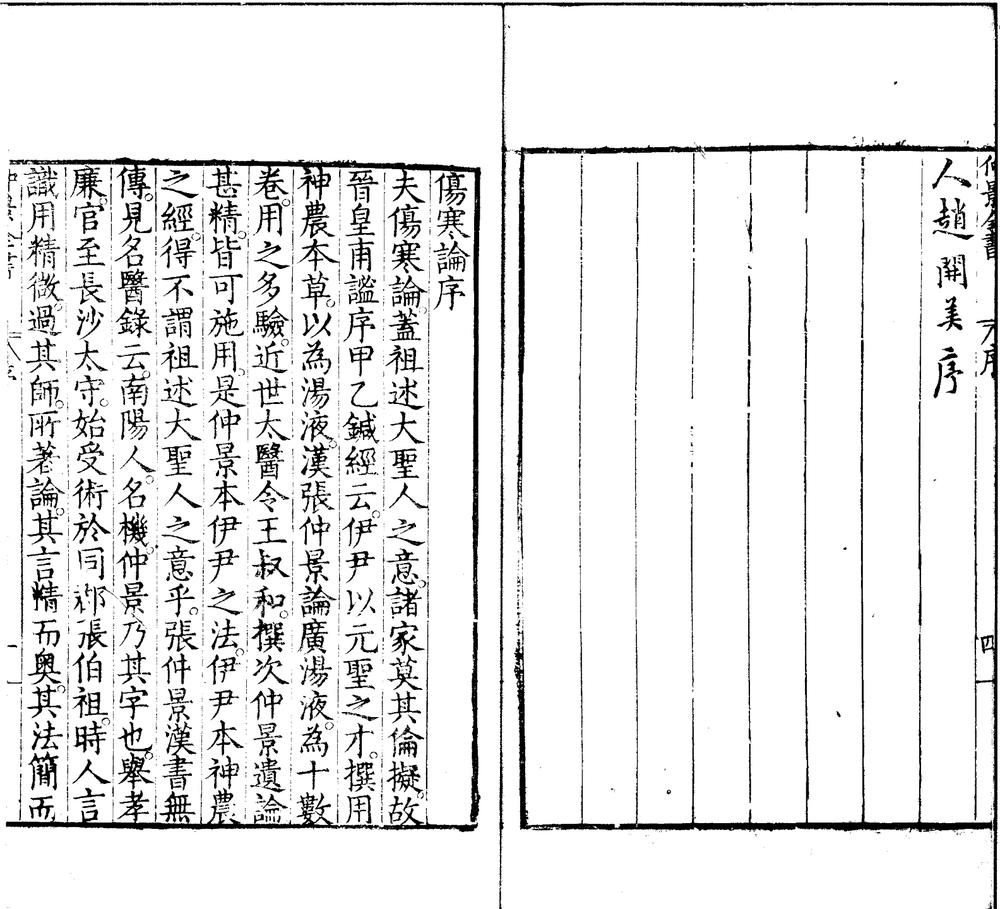 仲景全書
序
四
人趙開美序
傷寒論序
夫傷寒論。蓋祖述大聖人之意。諸家莫其倫擬。故
晉皇甫謐序甲乙鍼經云。伊尹以元聖之才。撰用
神農本草。以為湯液。漢張仲景論廣湯液。為十數
卷。用之多驗。近世太醫令王叔和。撰次仲景遺論
甚精。皆可施用。是仲景本伊尹之法。伊尹本神農
之經。得不謂祖述大聖人之意乎。張仲景漢書無
傳。見名醫錄云。南陽人。名機。仲景乃其字也。舉孝
廉。官至長沙太守。始受術於同郡張伯祖。時人言
識用精微。過其師。所著論。其言精而奧。其法簡而